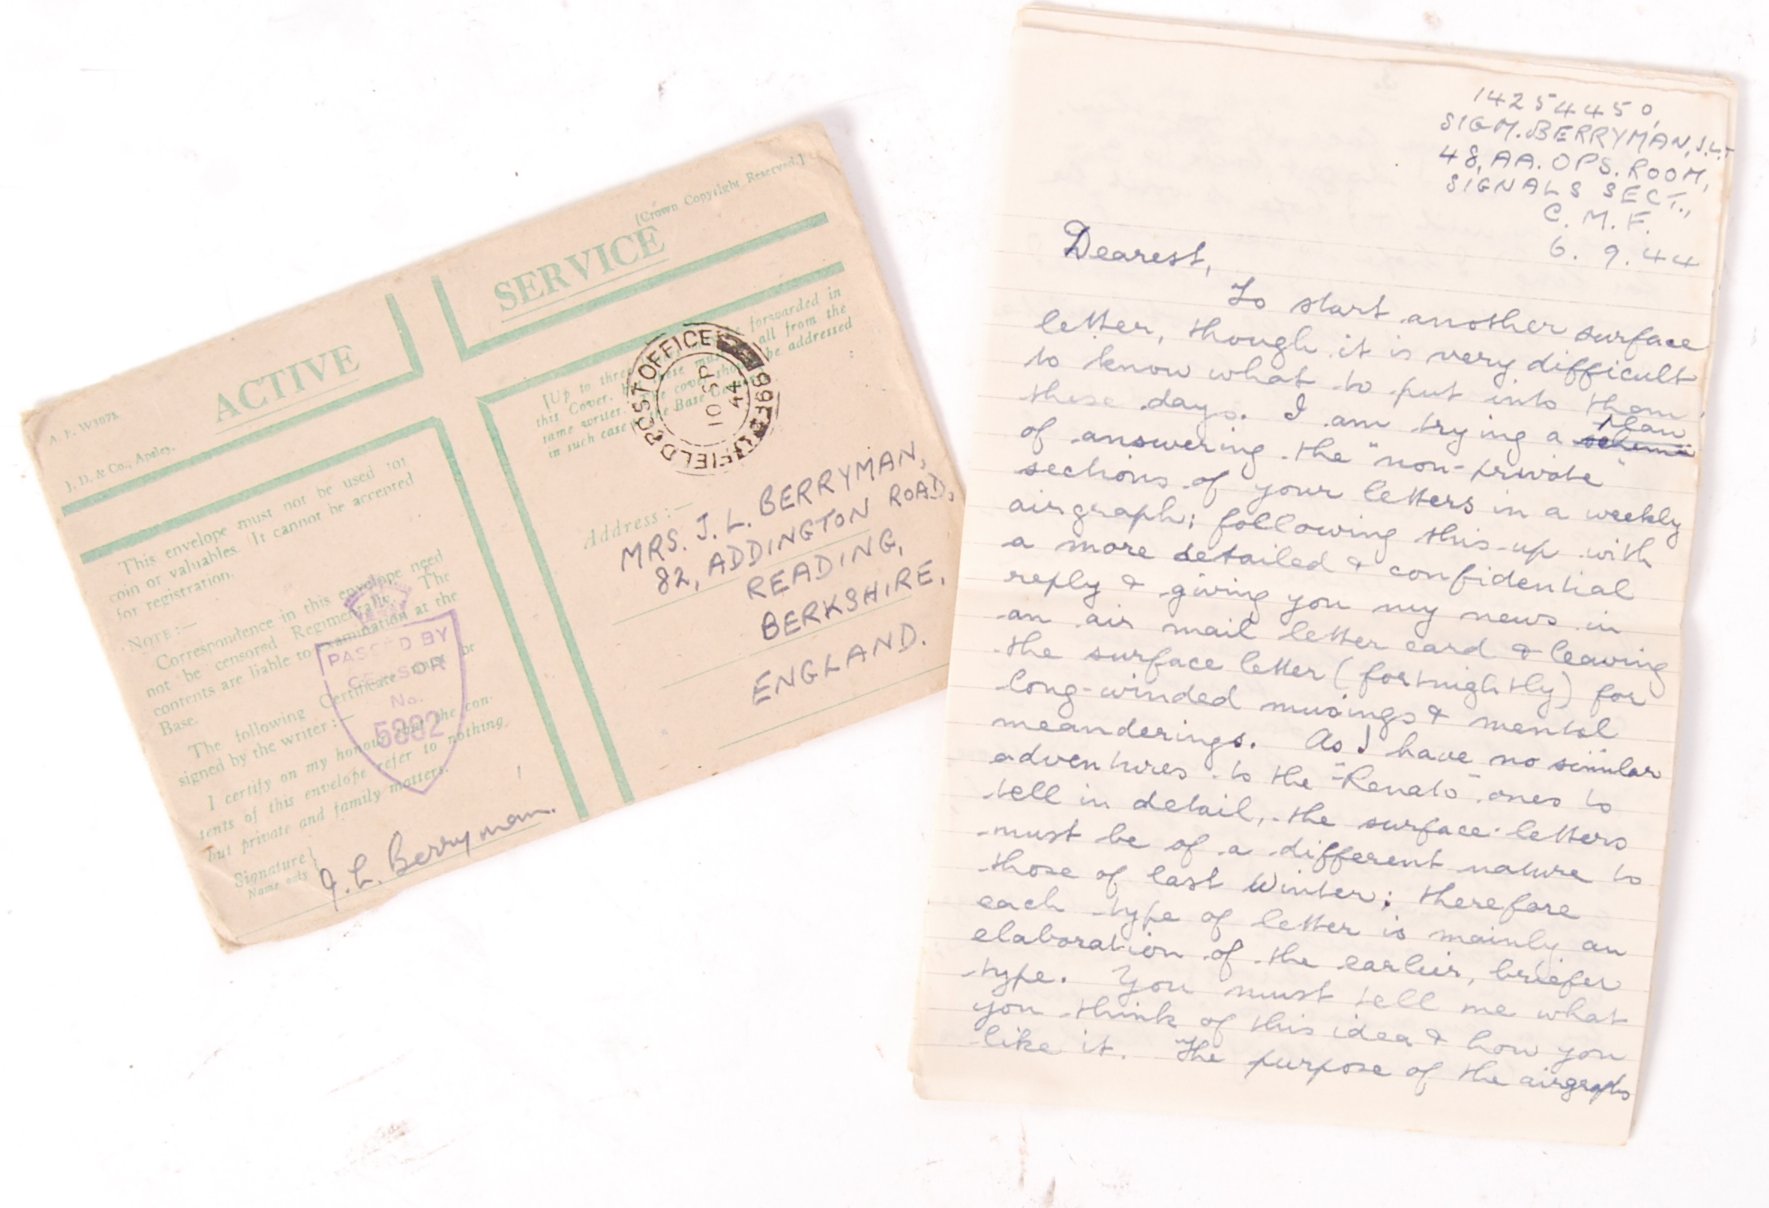 [Crown Copyright Reserved.]
A. F. W3078.
J. D. & Co., Apsley.
ACTIVE
SERVICE
This envelope must not be used for
coin or valuables. It cannot be accepted
for registration.
NOTE:—
Correspondence in this envelope need
not be censored Regimentally. The
contents are liable to examination at the
Base.
The following Certificate must be
signed by the writer:—
I certify on my honour that the con-
tents of this envelope refer to nothing
but private and family matters.
Signature
Name only
J. L. Berryman.
PASSED BY
CENSOR
No.
5892
[Up to three letters may be forwarded in
this Cover, but these must be all from the
same writer. The cover should be addressed
in such case to the Base Censor.]
FIELD POST OFFICE
10 SP
44
Address:—
MRS. J. L. BERRYMAN,
82, ADDINGTON ROAD,
READING,
BERKSHIRE,
ENGLAND.
14254450,
SIGM. BERRYMAN, J.L.
48, AA. OPS. ROOM,
SIGNALS SECT.,
C. M. F.
6. 9. 44
Dearest,
To start another surface
letter, though it is very difficult
to know what to put into them
these days. I am trying a scheme plan
of answering the "non-private"
sections of your letters in a weekly
airgraph; following this up with
a more detailed & confidential
reply & giving you my news in
an air mail letter card & leaving
the surface letter (fortnightly) for
long-winded musings & mental
meanderings. As I have no similar
adventures to the "Renato" ones to
tell in detail, the surface letters
must be of a different nature to
those of last Winter; therefore
each type of letter is mainly an
elaboration of the earlier, briefer
type. You must tell me what
you think of this idea & how you
like it. The purpose of the airgraphs